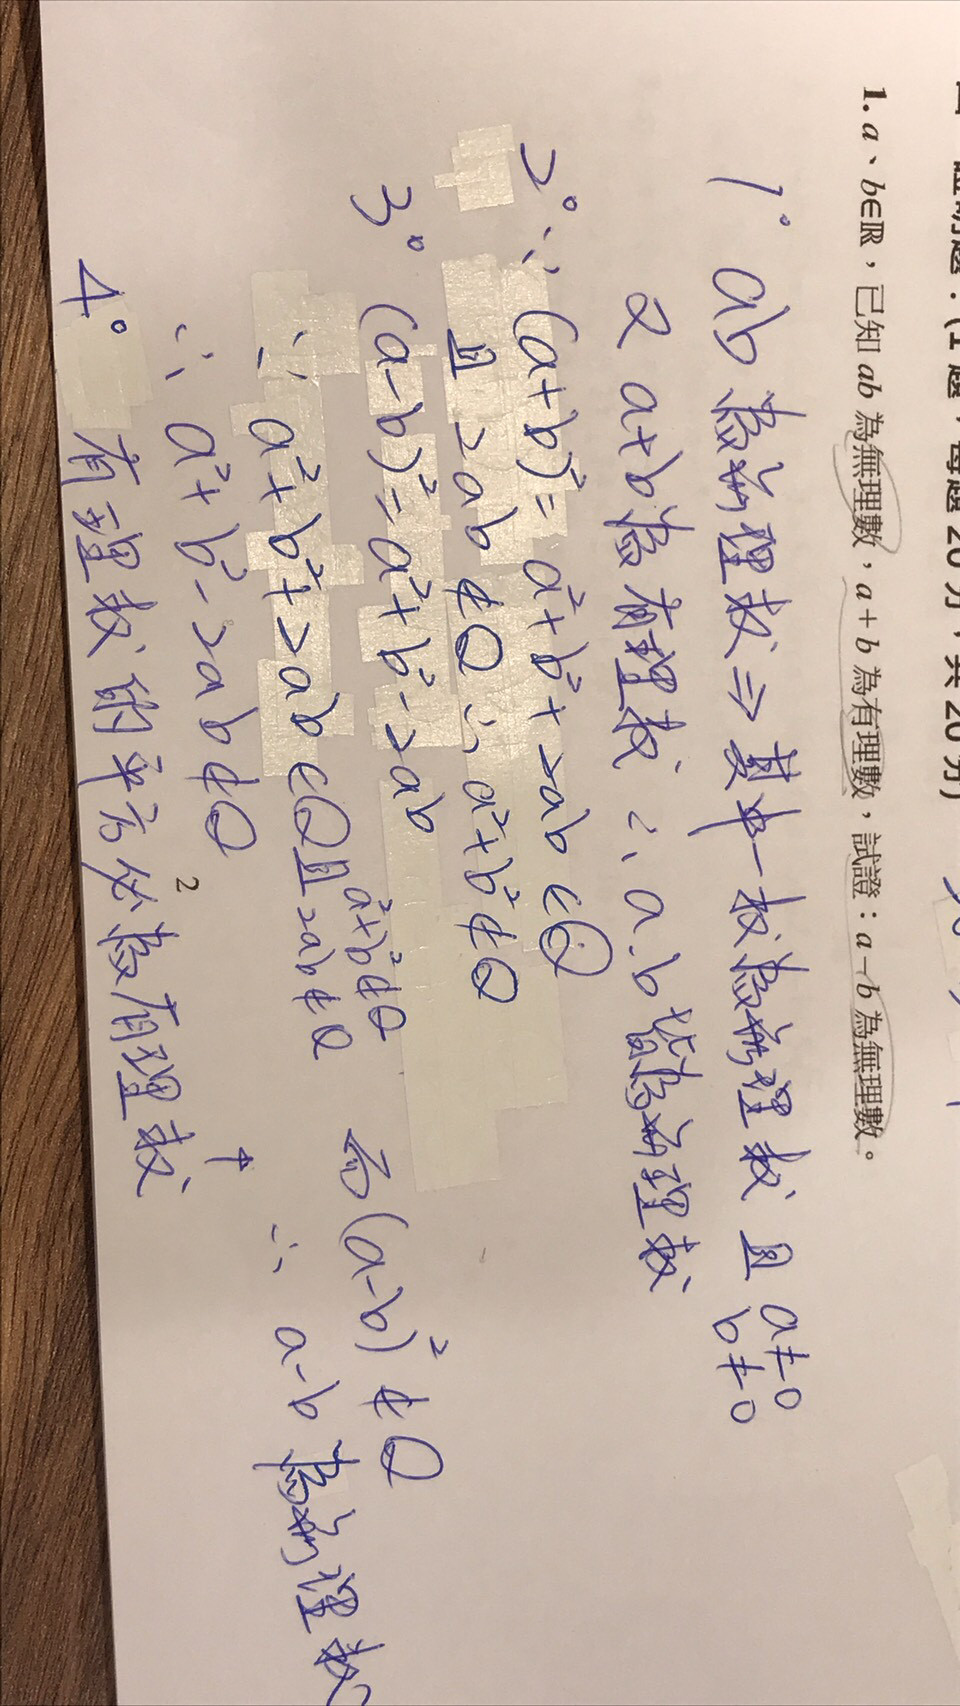 1. a、b∈ℝ，已知 ab 為無理數，a+b 為有理數，試證：a−b 為無理數。
1° ab 為無理數 ⇒ 其中一數為無理數 且 a≠0
b≠0
又 a+b 為有理數 ∴ a.b 皆為無理數
2° ∵ (a+b)² = a²+b²+2ab ∈Q
且 2ab ∉Q ∴ a²+b² ∉Q
3° (a-b)² = a²+b²-2ab
∵ a²+b²+2ab ∈Q 且 2ab ∉Q
a²+b² ∉Q
∴ a²+b²-2ab ∉Q
4° 有理數的平方必為有理數
2
而 (a-b)² ∉Q
∴ a-b 為無理數